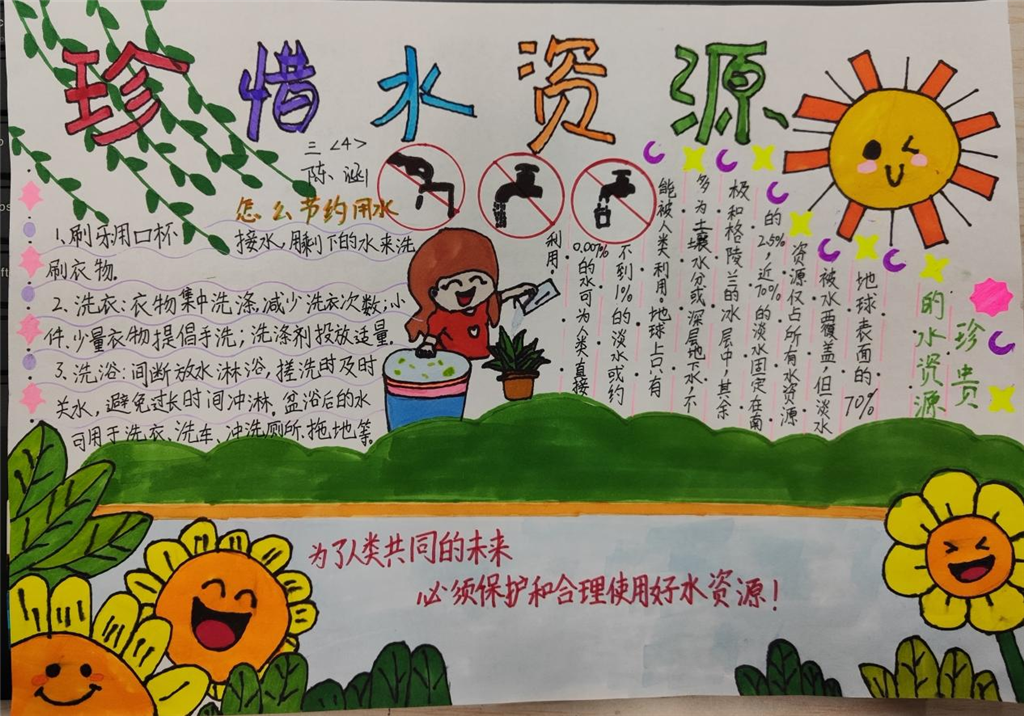 珍惜水资源
三<4>
陈涵
怎么节约用水
1.刷牙用口杯 接水,用剩下的水来洗
刷衣物.
2.洗衣:衣物集中洗涤,减少洗衣次数;小
件.少量衣物提倡手洗;洗涤剂投放适量.
3.洗浴:间断放水淋浴,搓洗时及时
关水,避免过长时间冲淋.盆浴后的水
可用于洗衣、洗车、冲洗厕所、拖地等.
珍贵
的水资源
地球表面的70%
被水覆盖,但淡水
资源仅占所有水资源
的2.5%,近70%的淡水固定在南
极和格陵兰的冰层中,其余
多为土壤水分或深层地下水,不
能被人类利用。地球上只有
不到1%的淡水或约
0.007%的水可为人类直接
利用.
为了人类共同的未来
必须保护和合理使用好水资源!